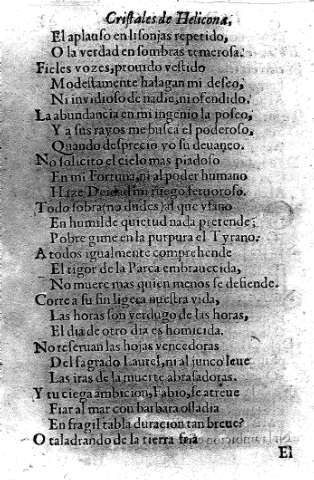 Cristales de Helicona,
El aplauso en lisonjas repetido,
O la verdad en sombras temerosa.
Fieles vozes, prouido vestido
Modestamente halagan mi deseo,
Ni inuidioso de nadie, ni ofendido.
La abundancia en mi ingenio la poseo,
Y a sus rayos me busca el poderoso,
Quando desprecio yo su deuaneo.
No solicito el cielo mas piadoso
En mi Fortuna, ni al poder humano
Haze Deidad mi ruego feruoroso.
Todo sobra (no dudes) al que vfano
En humilde quietud nada pretende;
Pobre gime en la purpura el Tyrano.
A todos igualmente comprehende
El rigor de la Parca embrauecida,
No muere mas quien menos se defiende.
Corre a su fin ligera nuestra vida,
Las horas son verdugo de las horas,
El dia de otro dia es homicida.
No reseruan las hojas vencedoras
Del sagrado Laurel, ni al junco leue
Las iras de la muerte abrasadoras.
Y tu ciega ambicion, Fabio, se atreue
Fiar al mar con barbara osadia
En fragil tabla duracion tan breue?
O taladrando de la tierra fria
El